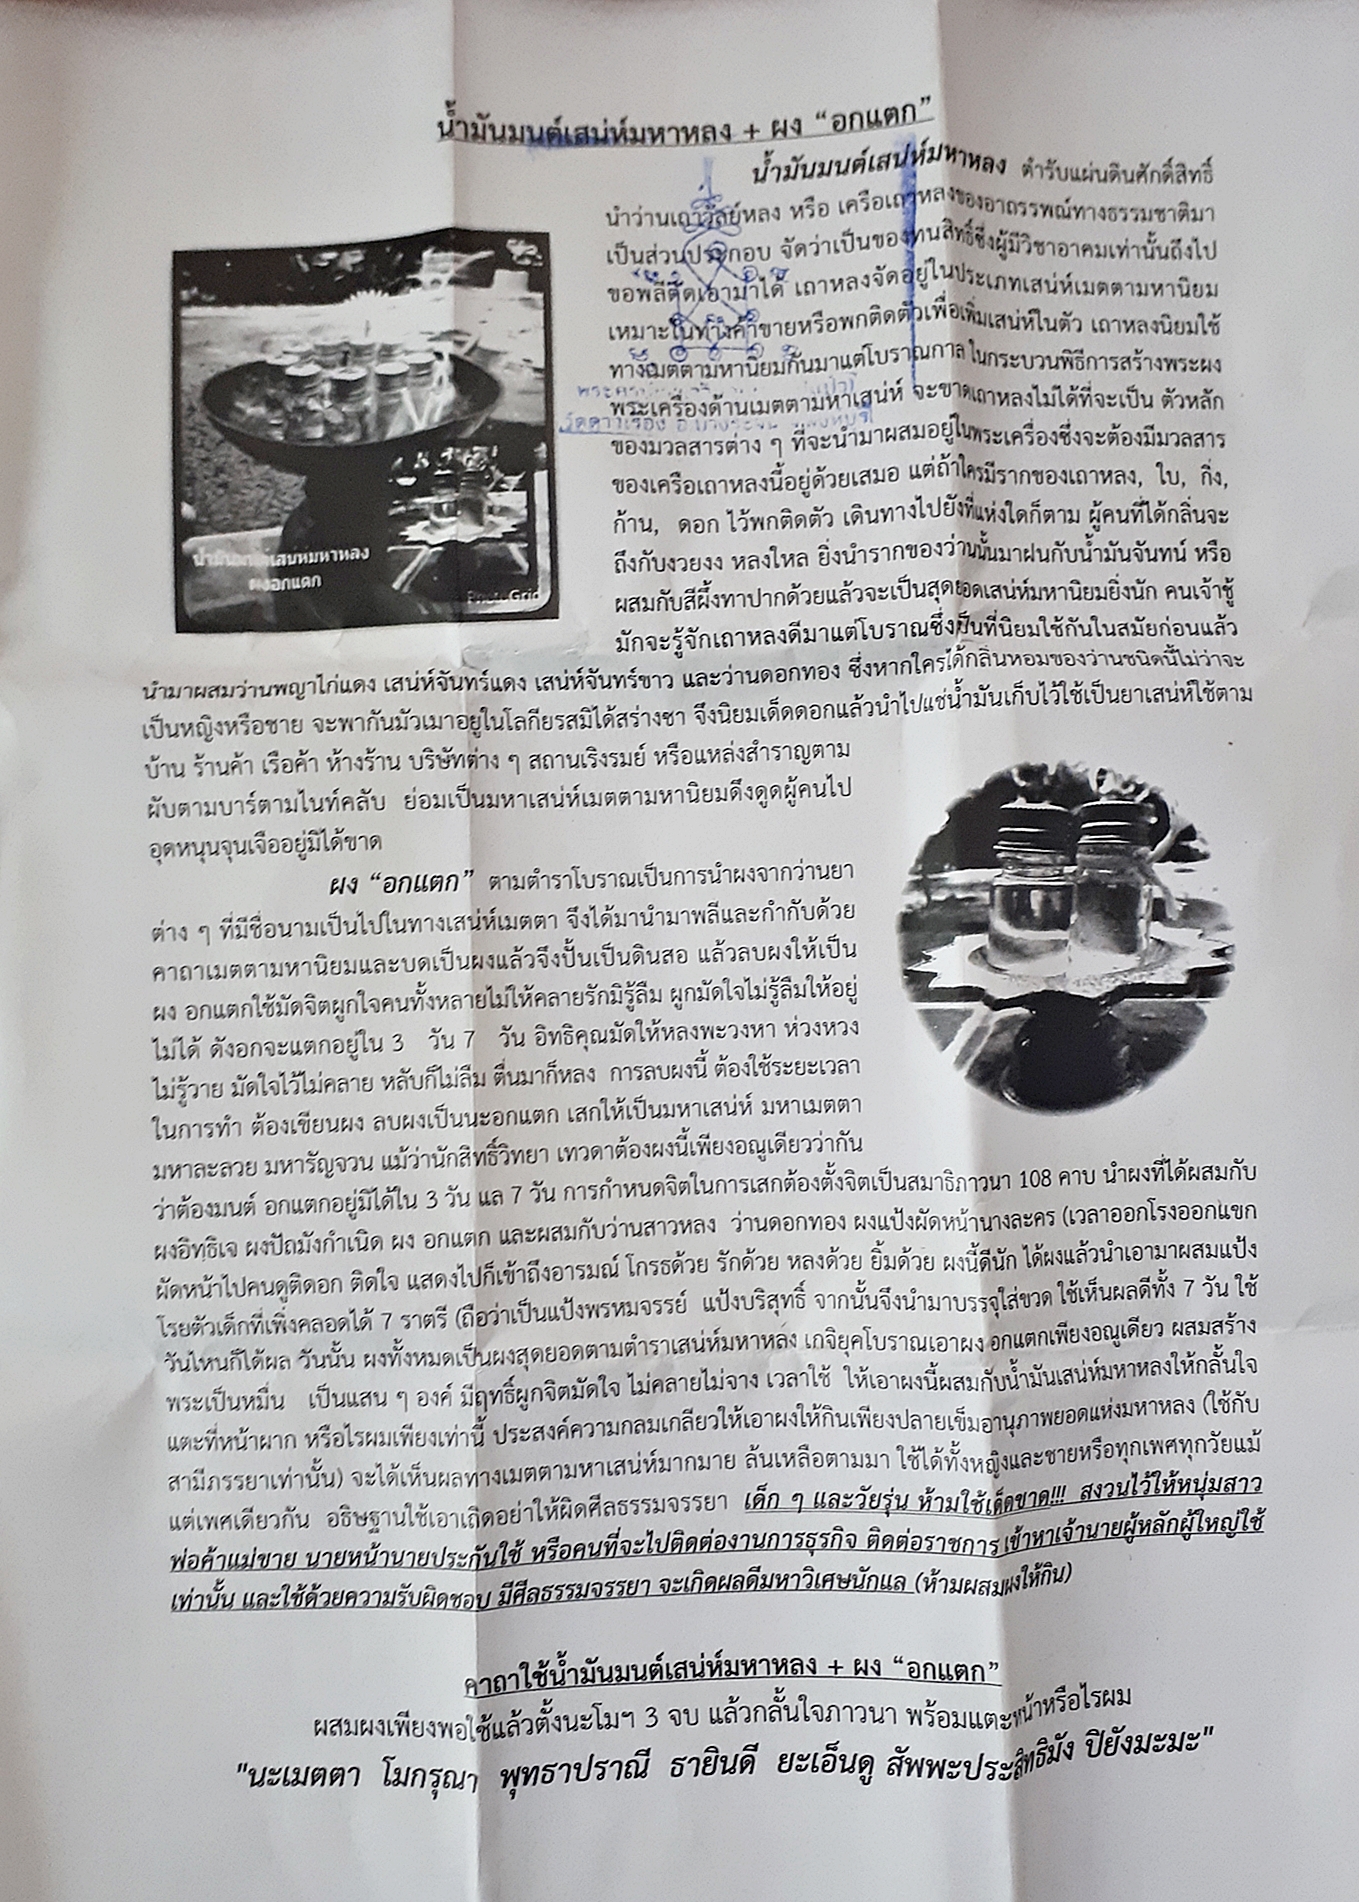 น้ำมันมนต์เสน่ห์มหาหลง + ผง “อกแตก”
น้ำมันมนต์เสน่ห์มหาหลง ตำรับแผ่นดินศักดิ์สิทธิ์
นำว่านเถาวัลย์หลง หรือ เครือเถาหลงของอาถรรพณ์ทางธรรมชาติมา
เป็นส่วนประกอบ จัดว่าเป็นของทนสิทธิ์ซึ่งผู้มีวิชาอาคมเท่านั้นถึงไป
ขอพลีตัดเอามาได้ เถาหลงจัดอยู่ในประเภทเสน่ห์เมตตามหานิยม
เหมาะในทางค้าขายหรือพกติดตัวเพื่อเพิ่มเสน่ห์ในตัว เถาหลงนิยมใช้
ทางเมตตามหานิยมกันมาแต่โบราณกาลในกระบวนพิธีการสร้างพระผง
พระเครื่องด้านเมตตามหาเสน่ห์ จะขาดเถาหลงไม่ได้ที่จะเป็น ตัวหลัก
ของมวลสารต่าง ๆ ที่จะนำมาผสมอยู่ในพระเครื่องซึ่งจะต้องมีมวลสาร
ของเครือเถาหลงนี้อยู่ด้วยเสมอ แต่ถ้าใครมีรากของเถาหลง, ใบ, กิ่ง,
ก้าน, ดอก ไว้พกติดตัว เดินทางไปยังที่แห่งใดก็ตาม ผู้คนที่ได้กลิ่นจะ
ถึงกับงวยงง หลงใหล ยิ่งนำรากของว่านนั้นมาฝนกับน้ำมันจันทน์ หรือ
ผสมกับสีผึ้งทาปากด้วยแล้วจะเป็นสุดยอดเสน่ห์มหานิยมยิ่งนัก คนเจ้าชู้
มักจะรู้จักเถาหลงดีมาแต่โบราณซึ่งเป็นที่นิยมใช้กันในสมัยก่อนแล้ว
น้ำมันมนต์เสน่ห์มหาหลง
ผงอกแตก
PhotoGrid
นำมาผสมว่านพญาไก่แดง เสน่ห์จันทร์แดง เสน่ห์จันทร์ขาว และว่านดอกทอง ซึ่งหากใครได้กลิ่นหอมของว่านชนิดนี้ไม่ว่าจะ
เป็นหญิงหรือชาย จะพากันมัวเมาอยู่ในโลกียรสมิได้สร่างซา จึงนิยมเด็ดดอกแล้วนำไปแช่น้ำมันเก็บไว้ใช้เป็นยาเสน่ห์ใช้ตาม
บ้าน ร้านค้า เรือค้า ห้างร้าน บริษัทต่าง ๆ สถานเริงรมย์ หรือแหล่งสำราญตาม
ผับตามบาร์ตามไนท์คลับ ย่อมเป็นมหาเสน่ห์เมตตามหานิยมดึงดูดผู้คนไป
อุดหนุนจุนเจืออยู่มิได้ขาด
ผง “อกแตก” ตามตำราโบราณเป็นการนำผงจากว่านยา
ต่าง ๆ ที่มีชื่อนามเป็นไปในทางเสน่ห์เมตตา จึงได้มานำมาพลีและกำกับด้วย
คาถาเมตตามหานิยมและบดเป็นผงแล้วจึงปั้นเป็นดินสอ แล้วลบผงให้เป็น
ผง อกแตกใช้มัดจิตผูกใจคนทั้งหลายไม่ให้คลายรักมิรู้ลืม ผูกมัดใจไม่รู้ลืมให้อยู่
ไม่ได้ ดังอกจะแตกอยู่ใน 3 วัน 7 วัน อิทธิคุณมัดให้หลงพะวงหา ห่วงหวง
ไม่รู้วาย มัดใจไว้ไม่คลาย หลับก็ไม่ลืม ตื่นมาก็หลง การลบผงนี้ ต้องใช้ระยะเวลา
ในการทำ ต้องเขียนผง ลบผงเป็นนะอกแตก เสกให้เป็นมหาเสน่ห์ มหาเมตตา
มหาละลวย มหารัญจวน แม้ว่านักสิทธิ์วิทยา เทวดาต้องผงนี้เพียงอณูเดียวว่ากัน
ว่าต้องมนต์ อกแตกอยู่มิได้ใน 3 วัน แล 7 วัน การกำหนดจิตในการเสกต้องตั้งจิตเป็นสมาธิภาวนา 108 คาบ นำผงที่ได้ผสมกับ
ผงอิทธิเจ ผงปัถมังกำเนิด ผง อกแตก และผสมกับว่านสาวหลง ว่านดอกทอง ผงแป้งผัดหน้านางละคร (เวลาออกโรงออกแขก
ผัดหน้าไปคนดูติดอก ติดใจ แสดงไปก็เข้าถึงอารมณ์ โกรธด้วย รักด้วย หลงด้วย ยิ้มด้วย ผงนี้ดีนัก ได้ผงแล้วนำเอามาผสมแป้ง
โรยตัวเด็กที่เพิ่งคลอดได้ 7 ราตรี (ถือว่าเป็นแป้งพรหมจรรย์ แป้งบริสุทธิ์ จากนั้นจึงนำมาบรรจุใส่ขวด ใช้เห็นผลดีทั้ง 7 วัน ใช้
วันไหนก็ได้ผล วันนั้น ผงทั้งหมดเป็นผงสุดยอดตามตำราเสน่ห์มหาหลง เกจิยุคโบราณเอาผง อกแตกเพียงอณูเดียว ผสมสร้าง
พระเป็นหมื่น เป็นแสน ๆ องค์ มีฤทธิ์ผูกจิตมัดใจ ไม่คลายไม่จาง เวลาใช้ ให้เอาผงนี้ผสมกับน้ำมันเสน่ห์มหาหลงให้กลั้นใจ
แตะที่หน้าผาก หรือไรผมเพียงเท่านี้ ประสงค์ความกลมเกลียวให้เอาผงให้กินเพียงปลายเข็มอานุภาพยอดแห่งมหาหลง (ใช้กับ
สามีภรรยาเท่านั้น) จะได้เห็นผลทางเมตตามหาเสน่ห์มากมาย ล้นเหลือตามมา ใช้ได้ทั้งหญิงและชายหรือทุกเพศทุกวัยแม้
แต่เพศเดียวกัน อธิษฐานใช้เอาเถิดอย่าให้ผิดศีลธรรมจรรยา เด็ก ๆ และวัยรุ่น ห้ามใช้เด็ดขาด!!! สงวนไว้ให้หนุ่มสาว
พ่อค้าแม่ขาย นายหน้านายประกันใช้ หรือคนที่จะไปติดต่องานการธุรกิจ ติดต่อราชการ เข้าหาเจ้านายผู้หลักผู้ใหญ่ใช้
เท่านั้น และใช้ด้วยความรับผิดชอบ มีศีลธรรมจรรยา จะเกิดผลดีมหาวิเศษนักแล (ห้ามผสมผงให้กิน)
คาถาใช้น้ำมันมนต์เสน่ห์มหาหลง + ผง “อกแตก”
ผสมผงเพียงพอใช้แล้วตั้งนะโมฯ 3 จบ แล้วกลั้นใจภาวนา พร้อมแตะหน้าหรือไรผม
"นะเมตตา โมกรุณา พุทธาปราณี ธายินดี ยะเอ็นดู สัพพะประสิทธิมัง ปิยังมะมะ"